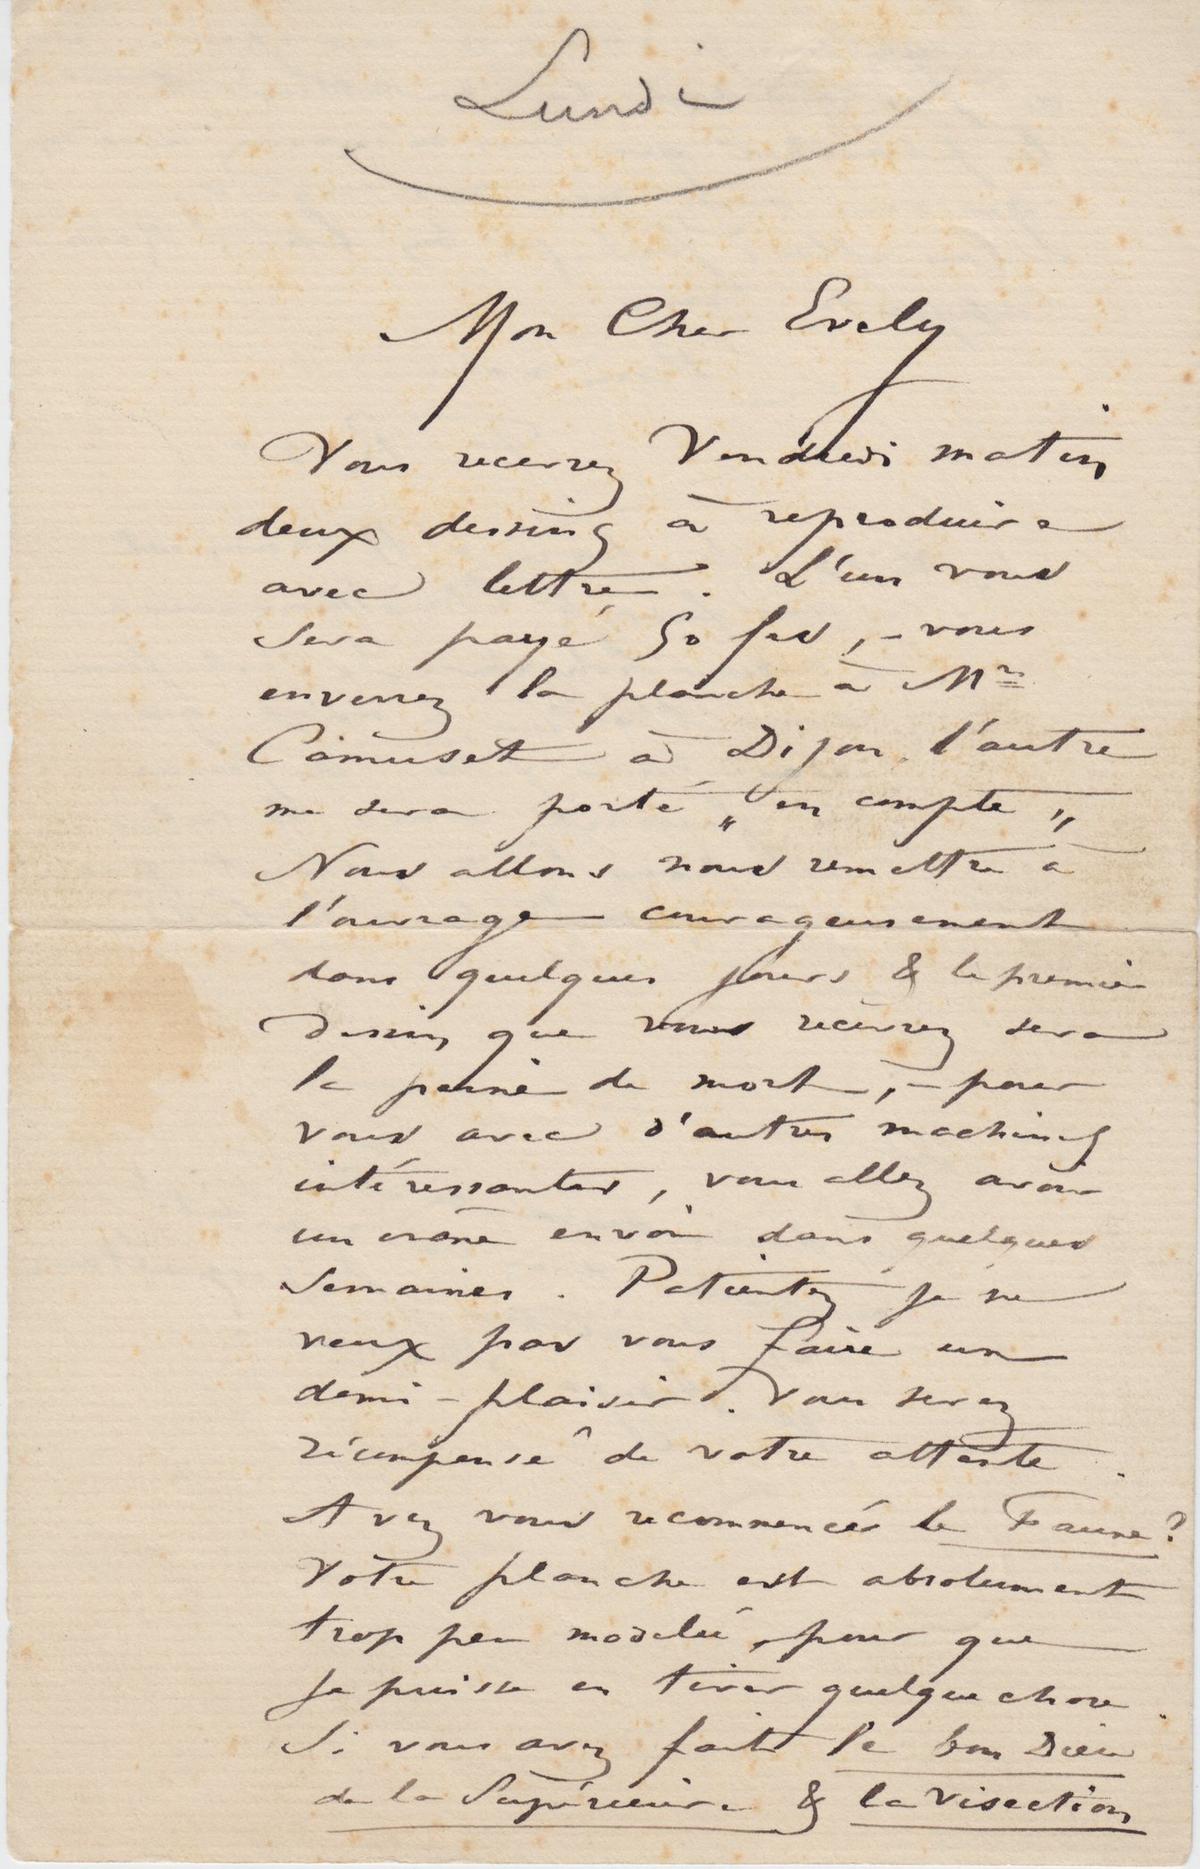 Lundi
Mon Cher Evely
Vous recevrez Vendredi matin
deux dessins à reproduire
avec lettre. L'un vous
sera payé 50 frs, – vous
enverrez la planche à Mr
Camuset à Dijon, l'autre
me sera porté „ en compte „
Nous allons nous remettre à
l'ouvrage courageusement
dans quelques jours & le premier
dessin que vous recevrez sera
la peine de mort, – pour
vous avec d'autres machines
intéressantes, vous allez avoir
un crâne envoi dans quelques
semaines. Patientez je ne
veux pas vous faire un
demi-plaisir. Vous serez
récompensé de votre attente.
Avez vous recommencer le Faune?
Votre planche est absolument
trop peu modelée, pour que
je puisse en tirer quelque chose.
Si vous avez fait le bon Dieu
de la Supérieure & la Visection